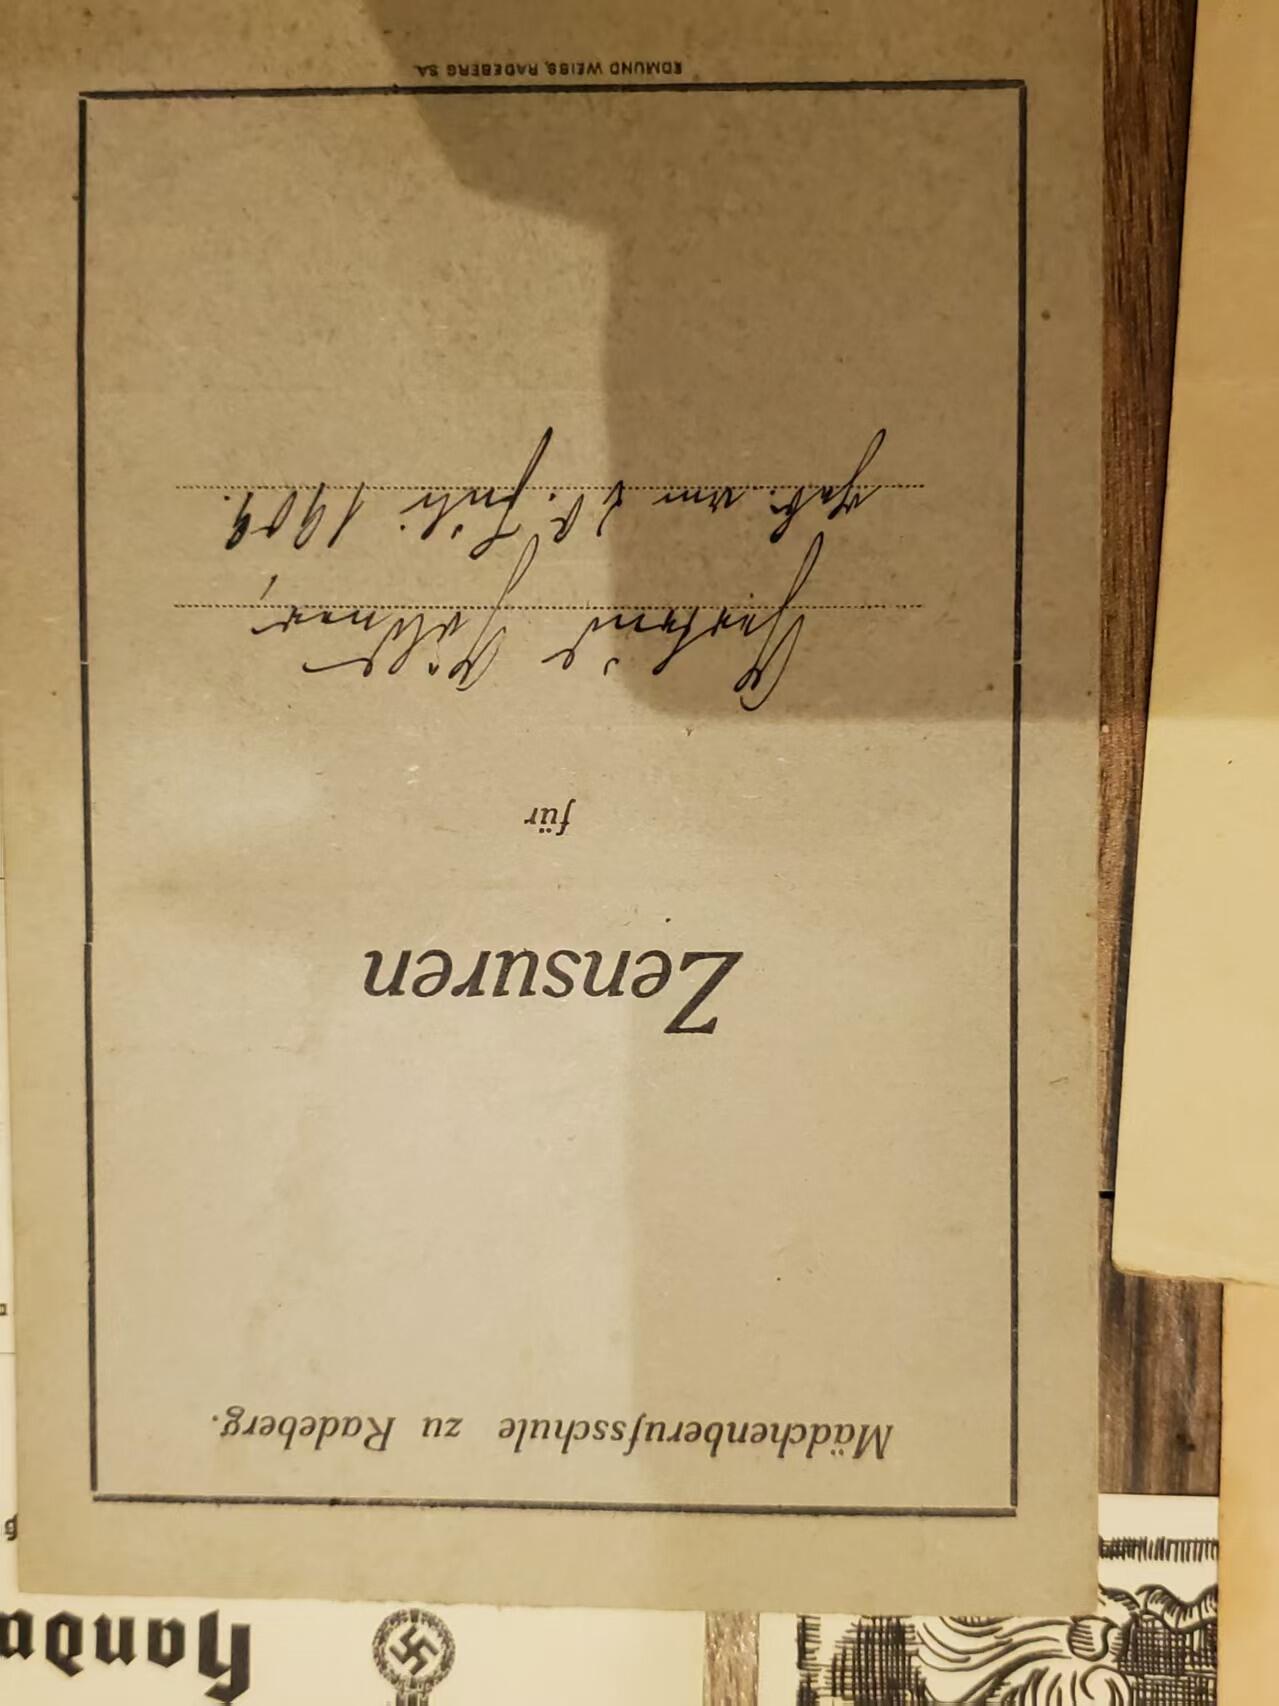 Mädchenberufsschule zu Radeberg.
Zensuren
für
Gertrud
geb. am 28. Juli 1909.
EDMUND WEISS, RADEBERG SA.